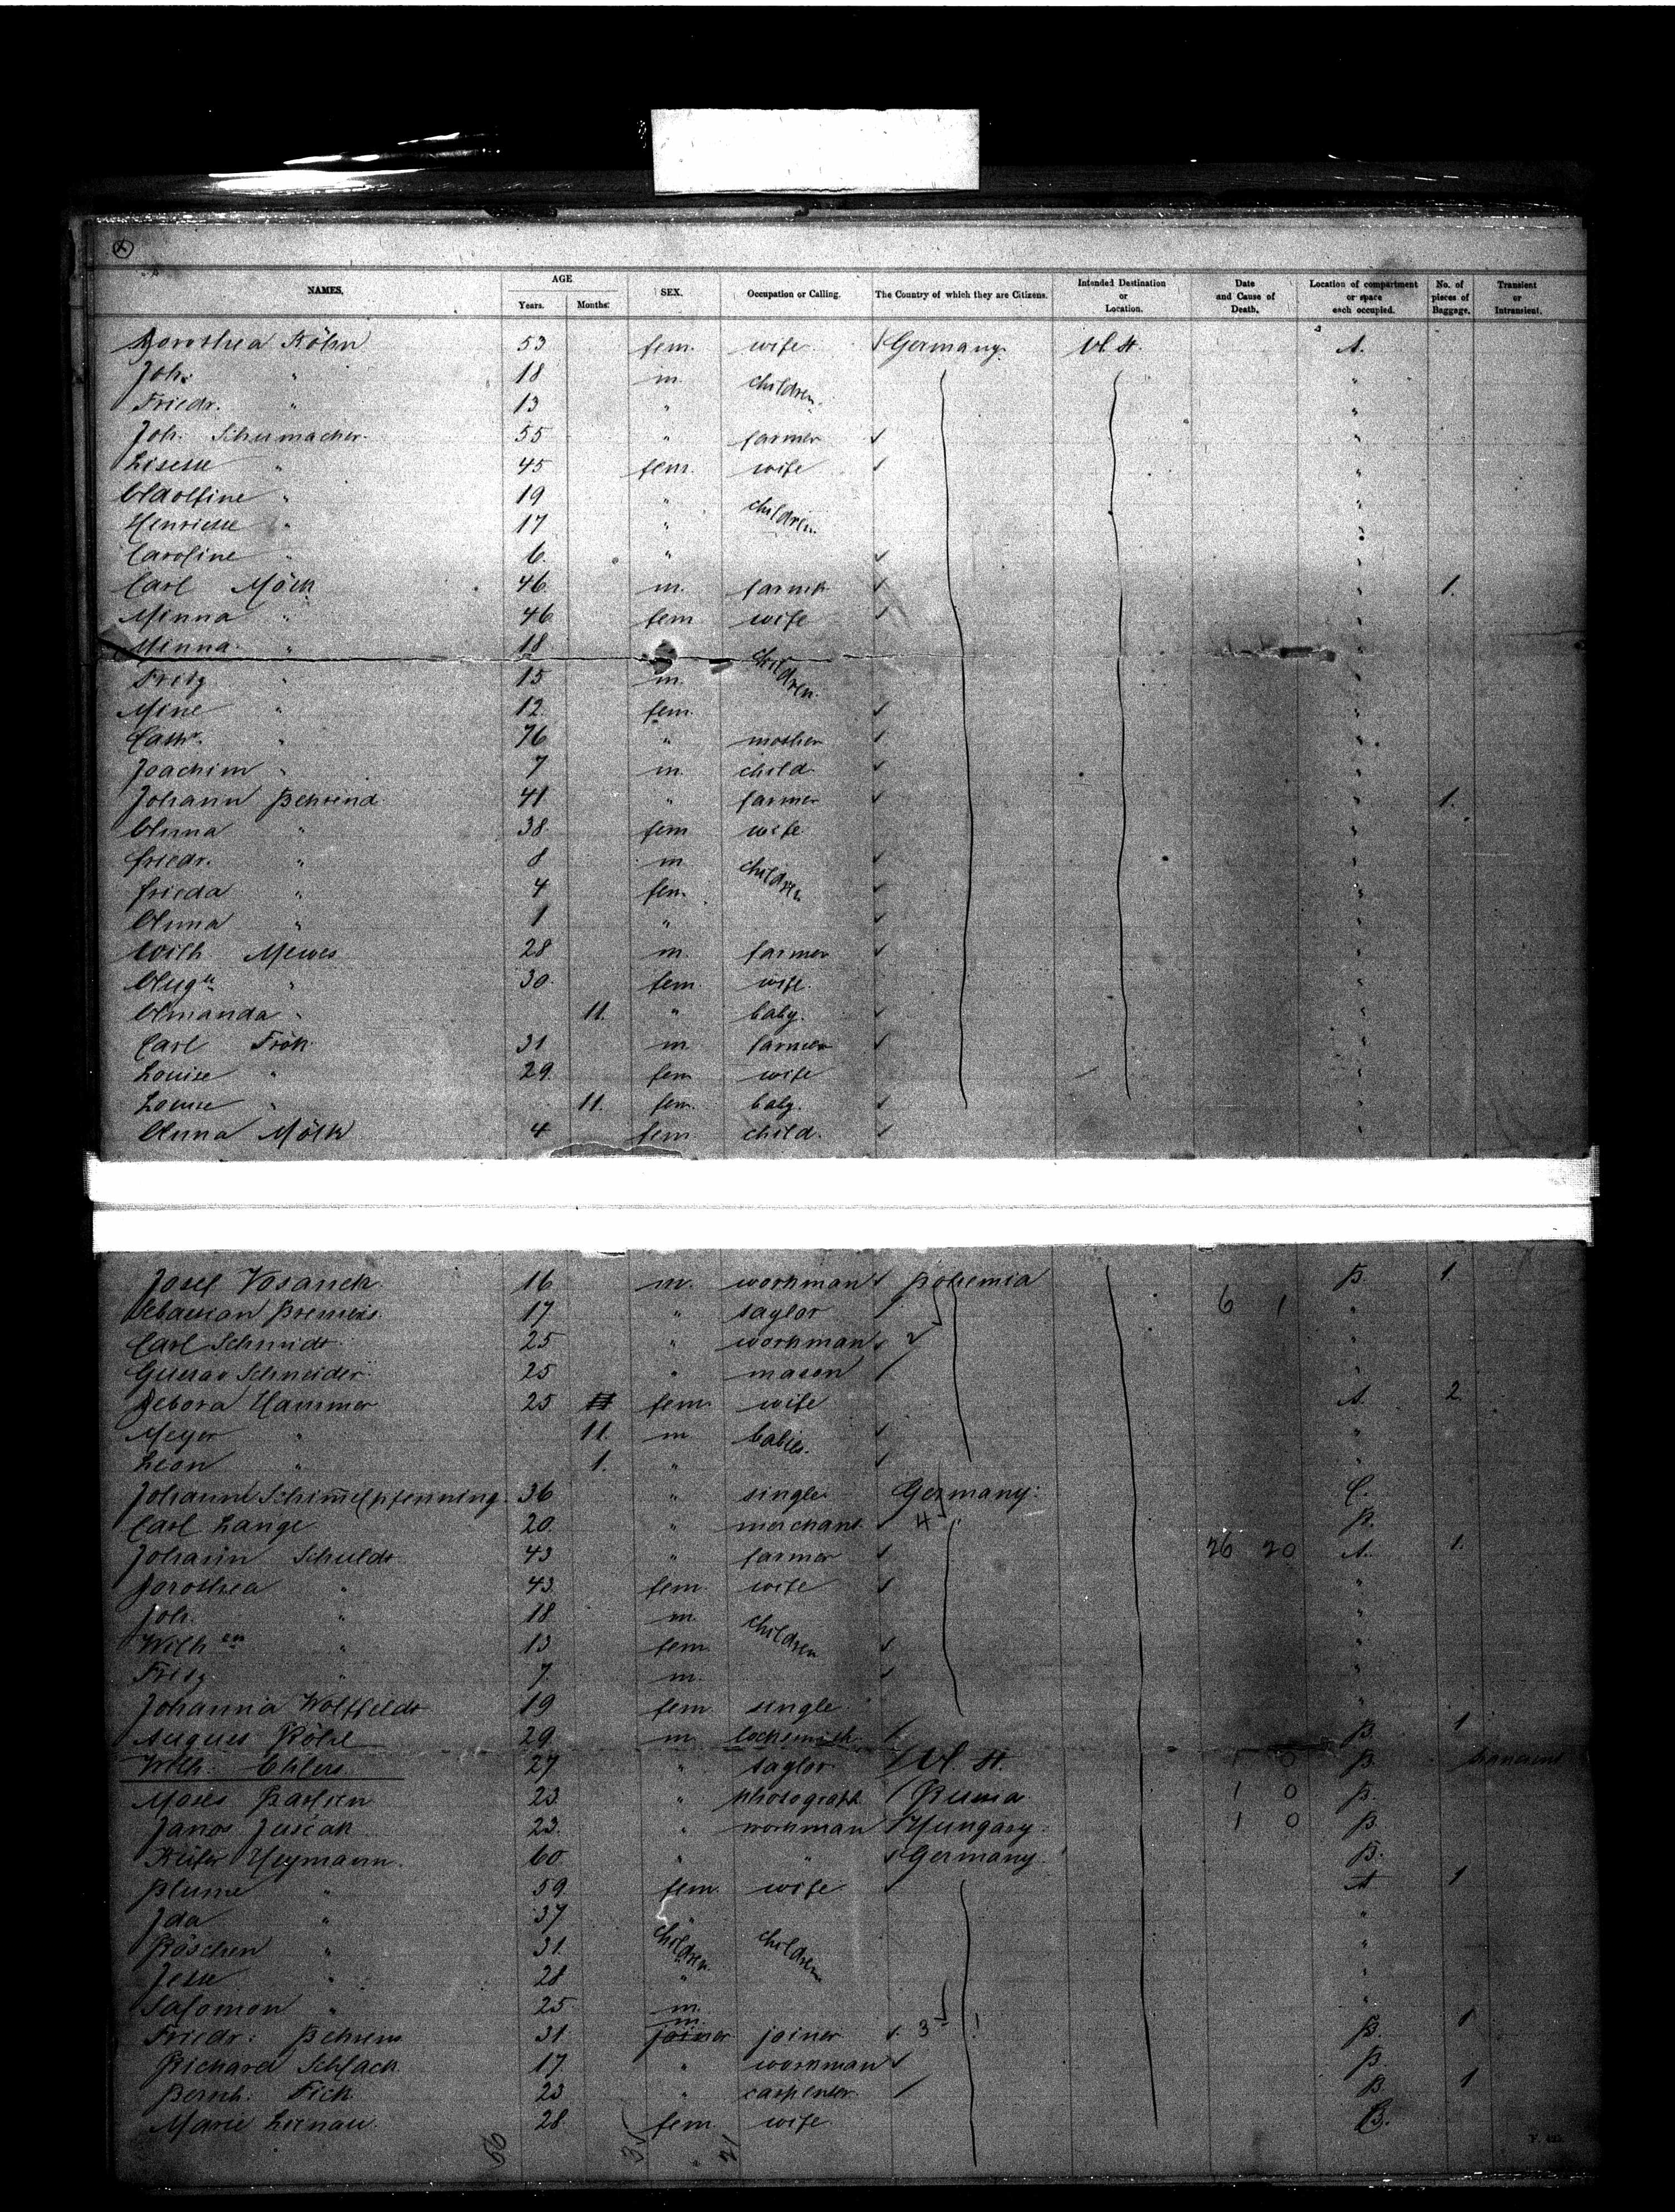 NAMES. AGE Years. Months. SEX. Occupation or Calling. The Country of which they are Citizens. Intended Destination or Location. Date and Cause of Death. Location of compartment or space each occupied. No. of pieces of Baggage. Transient or Intransient.
Dorothea Köhn 53 fem. wife Germany. U. St. A.
Joh. " 18 m. children.
Friedr. " 13 "
Joh. Schumacher 55 " farmer
Lisette " 45 fem. wife
Adolfine " 19 " children
Henriette " 17 "
Caroline " 6 "
Carl Mölk 46 m. farmer 1.
Minna " 46 fem wife
Minna " 18
Fritz " 15 m. children.
Mine " 12 fem.
Cath. " 76 " mother
Joachim " 7 m. child
Johann Behrend 41 " farmer 1.
Anna " 38 fem wife
Friedr. " 8 m children
Frieda " 4 fem.
Anna " 1 "
Wilh. Mewes 28 m. farmer
Aug. " 30 fem. wife.
Amanda " 11. " baby.
Carl Fröh 31 m farmer
Louise " 29 fem wife
Louise " 11. fem. baby.
Anna Mölk 4 fem child.
Josef Vosanek 16 m. workman Bohemia B. 1
17 " taylor 6 1 "
Carl Schmidt 25 " workman 2
Gustav Schneider 25 " mason
Debora Hammer 25 fem. wife A. 2
Meyer " 11. m babies. "
Leon " 1. "
Johann Schimmelpfenning 36 " single Germany. C.
Carl Lange 20 " merchant 4 B.
Johann Schuldt 43 " farmer 26 20 A. 1.
Dorothea " 43 fem. wife "
Joh. " 18 m. children "
Wilh. " 13 fem. "
Fritz " 7 m. "
Johanna Wolffeldt 19 fem. single "
August Röhl 29 m locksmith B. 1
Wilh. Ehlers 27 " taylor U. St. 1 0 B. transient
Moses 23 " photograph Russia 1 0 B.
Janos Juscak 23. " workman Hungary. 1 0 B.
Heymann. 60 " " Germany. B.
Blume " 59 fem. wife A 1
Ida " 37 " "
Röschen " 31 children. children "
Jette " 28 "
Salomon " 25 m. "
Friedr. Behrens 31 m. joiner joiner 3 B. 1
Richard Schlack 17 " workman B.
Bernh. Fick 23 " carpenter B. 1
Marie Lienau 28 fem. wife B.
56 35 21